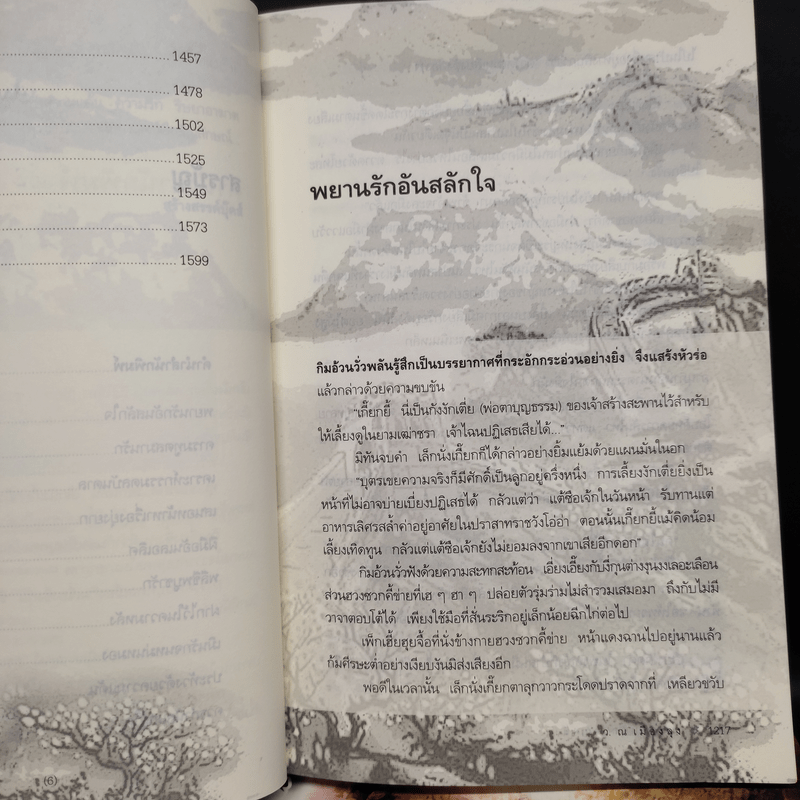 1457
1478
1502
1525
1549
1573
1599
(6)
พยานรักอันสลักใจ
กิมอ้วนวั่วพลันรู้สึกเป็นบรรยากาศที่กระอักกระอ่วนอย่างยิ่ง จึงแสร้งหัวร่อ
แล้วกล่าวด้วยความขบขัน
"เกี๊ยกยี้ นี่เป็นกังงักเตี่ย (พ่อตาบุญธรรม) ของเจ้าสร้างสะพานไว้สำหรับ
ให้เลี้ยงดูในยามเฒ่าชรา เจ้าไฉนปฏิเสธเสียได้..."
มิทันจบคำ เล็กนั่งเกี๊ยกก็ได้กล่าวอย่างยิ้มแย้มด้วยแผนมั่นในอก
"บุตรเขยความจริงก็มีศักดิ์เป็นลูกอยู่ครึ่งหนึ่ง การเลี้ยงงักเตี่ยยิ่งเป็น
หน้าที่ไม่อาจบ่ายเบี่ยงปฏิเสธได้ กลัวแต่ว่า แต้ซือเจ้กในวันหน้า รับทานแต่
อาหารเลิศรสล้ำค่าอยู่อาศัยในปราสาทราชวังโอ่อ่า ตอนนั้นเกี๊ยกยี้แม้คิดน้อม
เลี้ยงเทิดทูน กลัวแต่แต้ซือเจ้กยังไม่ยอมลงจากเขาเสียอีกดอก"
กิมอ้วนวั่วฟังด้วยความสะทกสะท้อน เอี่ยงเอี๊ยงกับงี่กุนต่างงุนงงเลอะเลือน
ส่วนฮวงซวกคี้ข่ายที่เฮ ๆ ฮา ๆ ปล่อยตัวรุ่มร่ามไม่สำรวมเสมอมา ถึงกับไม่มี
วาจาตอบโต้ได้ เพียงใช้มือที่สั่นระริกอยู่เล็กน้อยฉีกไก่ต่อไป
เพ็กเฮี้ยฮุยจื้อที่นั่งข้างกายฮวงซวกคี้ข่าย หน้าแดงฉานไปอยู่นานแล้ว
ก้มศีรษะต่ำอย่างเงียบงันมิส่งเสียงอีก
พอดีในเวลานั้น เล็กนั่งเกี๊ยกตาลุกวาวกระโดดปราดจากที่ เหลียวขวับ
ว. ณ เมืองลุง 1217